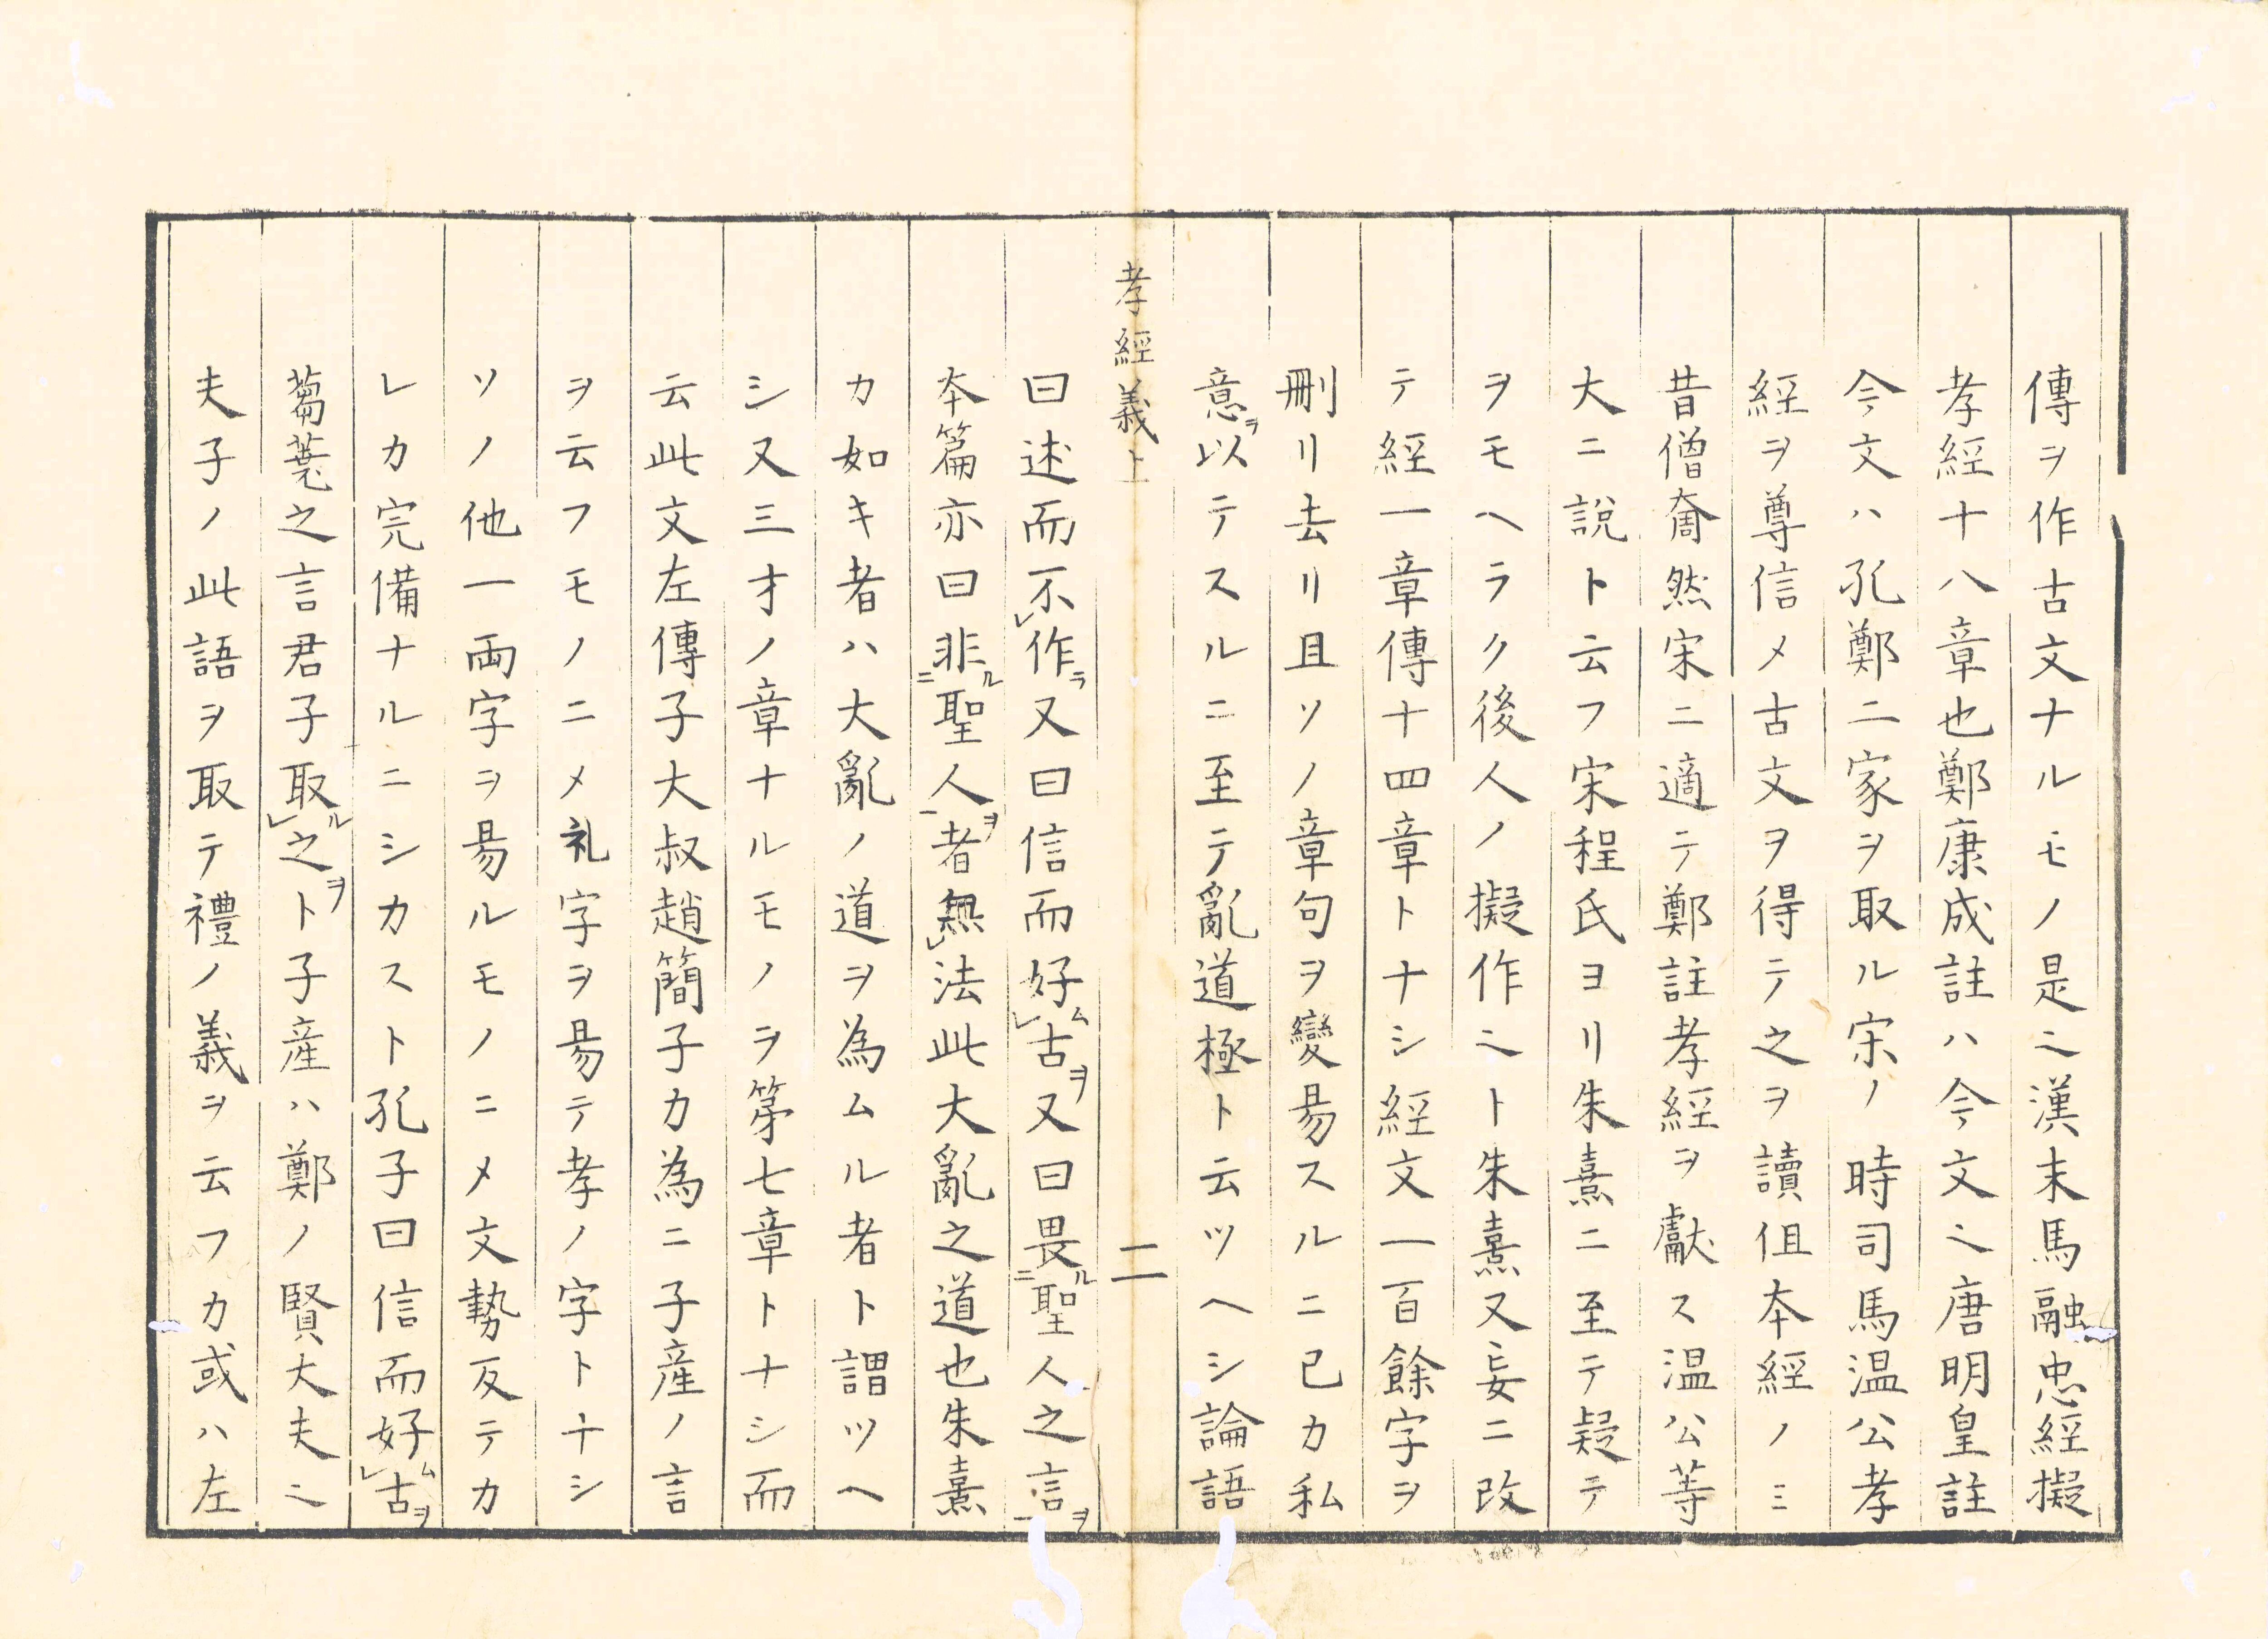 傳ヲ作古文ナルモノ是ニ漢末馬融忠經擬
孝經十八章也鄭康成註ハ今文ニ唐明皇註
今文ハ孔鄭二家ヲ取ル宋ノ時司馬温公孝
經ヲ尊信メ古文ヲ得テ之ヲ讀伹本經ノミ
昔僧奝然宋ニ適テ鄭註孝經ヲ獻ス温公等
大ニ説ト云フ宋程氏ヨリ朱熹ニ至テ疑テ
ヲモヘラク後人ノ擬作ニト朱熹又妄ニ改
テ經一章傳十四章トナシ經文一百餘字ヲ
刪リ去リ且ソノ章句ヲ變昜スルニ已カ私
意ヲ以テスルニ至テ亂道極ト云ツヘシ論語
孝經義上
二
曰述而不レ作ラ又曰信而好ムレ古ヲ又曰畏ルニ聖人之言ヲ一
本篇亦曰非ルニ聖人ヲ一者無レ法此大亂之道也朱熹
カ如キ者ハ大亂ノ道ヲ為ムル者ト謂ツヘ
シ又三才ノ章ナルモノヲ第七章トナシ而
云此文左傳子大叔趙簡子カ為ニ子産ノ言
ヲ云フモノニメ礼字ヲ昜テ孝ノ字トナシ
ソノ他一両字ヲ昜ルモノニメ文勢反テカ
レカ完備ナルニシカスト孔子曰信而好ムレ古ヲ
蒭蕘之言君子取ルレ之ヲト子産ハ鄭ノ賢大夫ニ
夫子ノ此語ヲ取テ禮ノ義ヲ云フカ或ハ左